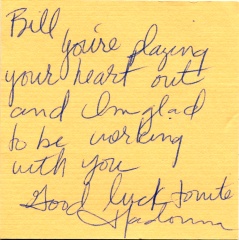 Bill
you're playing
your heart out
and I'm glad
to be working
with you
Good luck tonite
Madonna